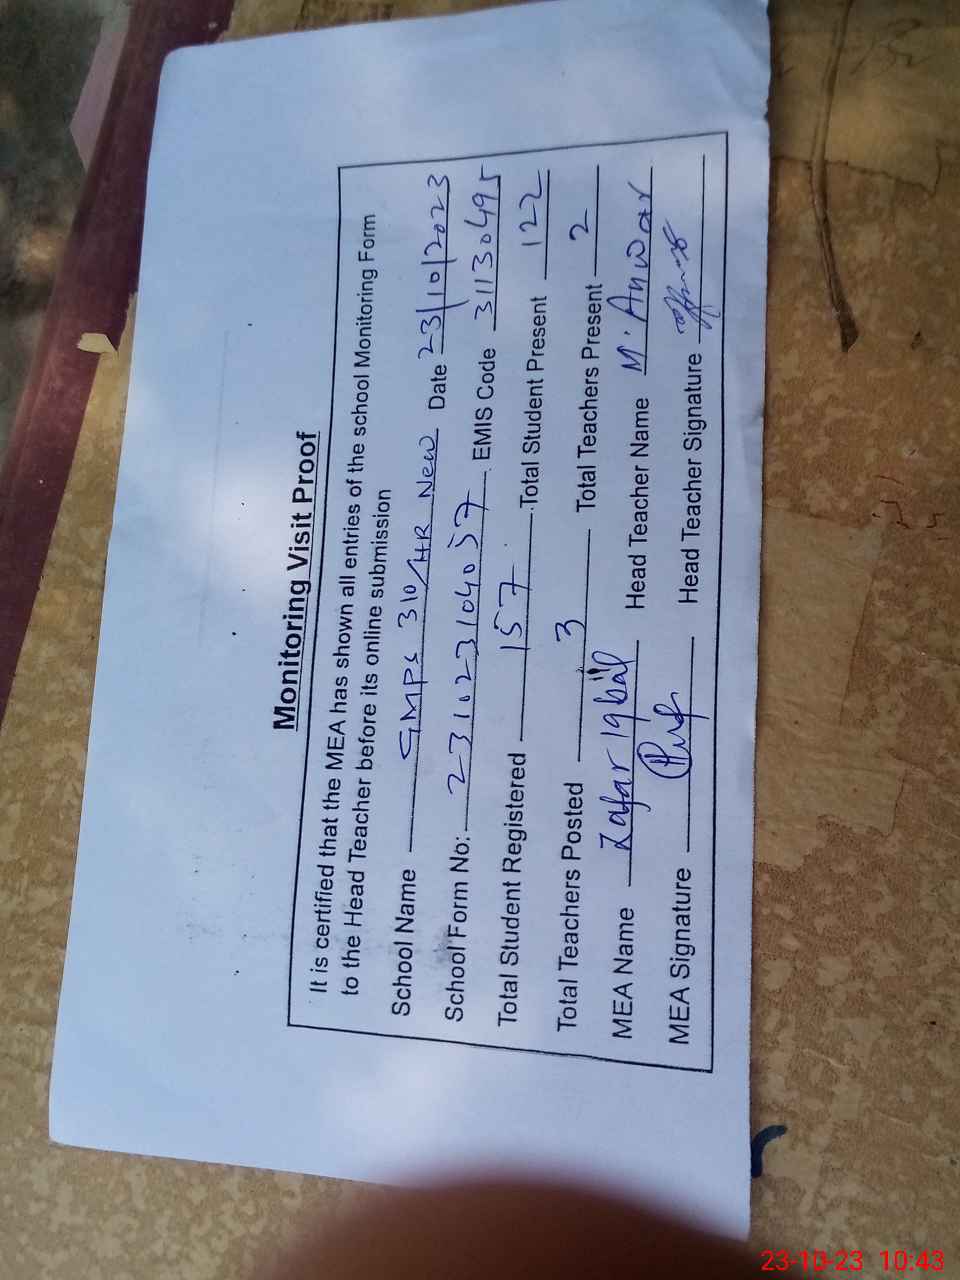 Monitoring Visit Proof
It is certified that the MEA has shown all entries of the school Monitoring Form
to the Head Teacher before its online submission
School Name GMPS 310/HR New Date 23/10/2023
School Form No: 231023104057 EMIS Code 31130495
Total Student Registered 157 Total Student Present 122
Total Teachers Posted 3 Total Teachers Present 2
MEA Name Zafar Iqbal Head Teacher Name M. Anwar
MEA Signature Head Teacher Signature
23-10-23 10:43